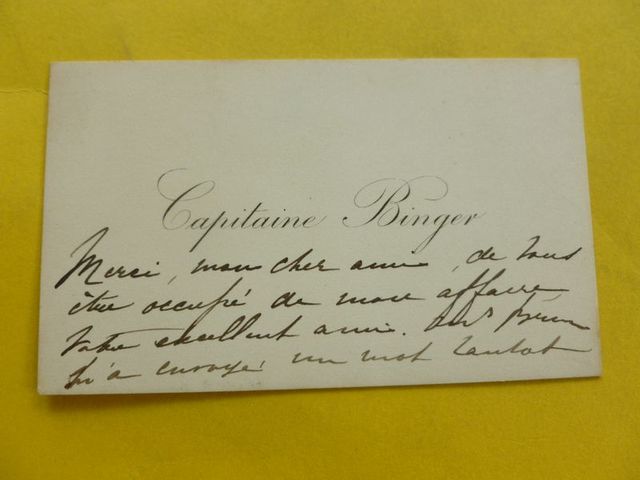 Capitaine Binger
Merci, mon cher ami, de vous
être occupé de mon affaire
Votre excellent ami
m'a envoyé un mot tantôt